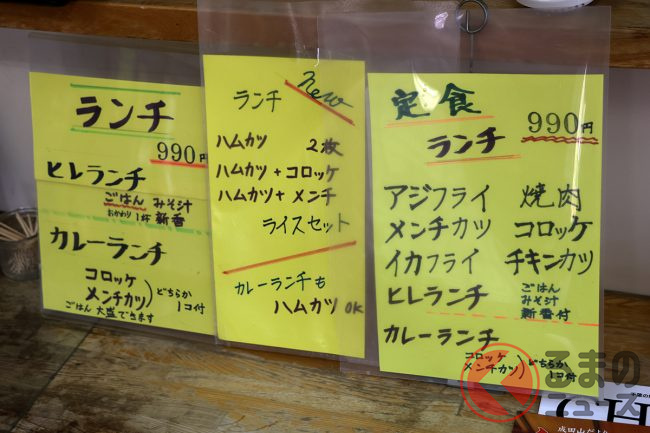 ランチ
990円
ヒレランチ
ごはん みそ汁
おかわり1杯 新香
カレーランチ
コロッケ
メンチカツ) どちらか
1コ付
ごはん 大盛できます
New
ランチ
ハムカツ 2枚
ハムカツ+コロッケ
ハムカツ+メンチ
ライスセット
カレーランチも
ハムカツ OK
定食
990円
ランチ
アジフライ 焼肉
メンチカツ コロッケ
イカフライ チキンカツ
ヒレランチ ごはん
みそ汁
新香付
カレーランチ
コロッケ
メンチカツ) どちらか
1コ付
くるまの
ニュース